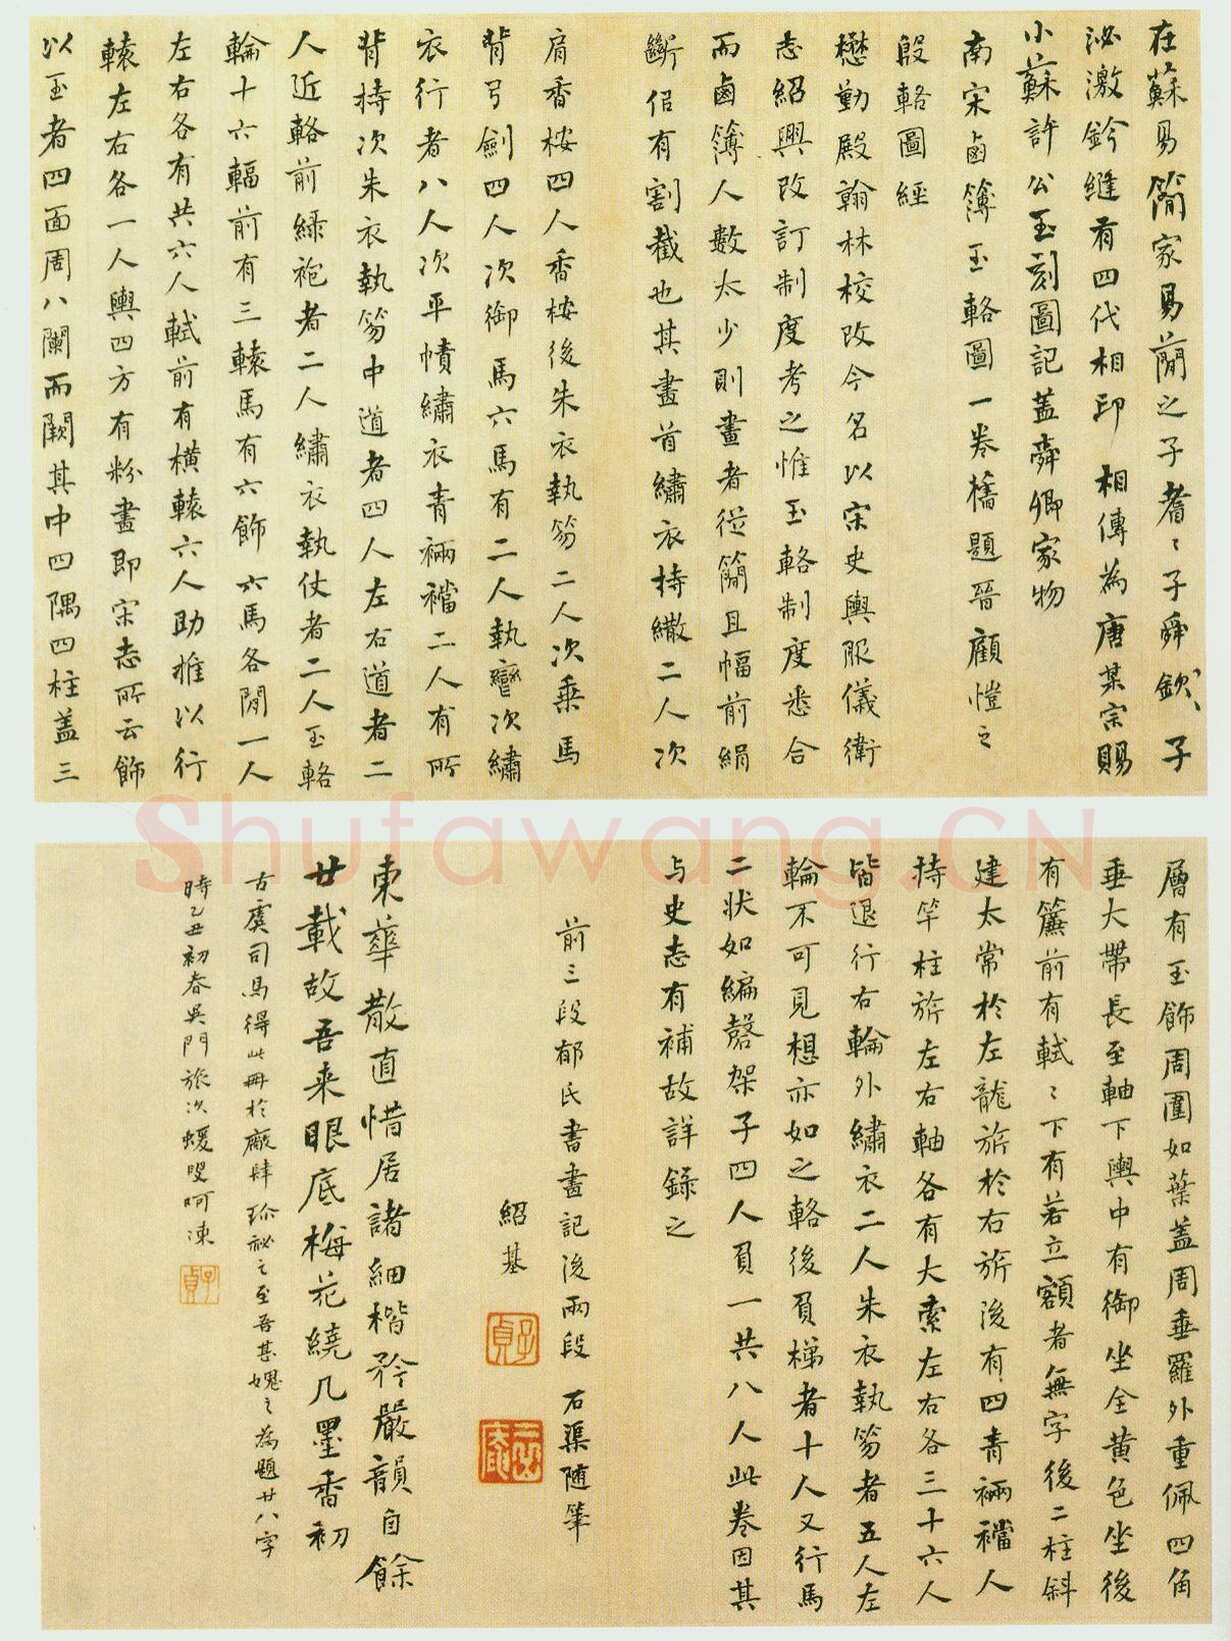 在蘇易簡家易簡之子耆〻子舜欽、子
泌激鈐縫有四代相印　相傳為唐某宗賜
小蘇許公玉刻圖記蓋舜卿家物
南宋鹵簿玉輅圖一卷舊題晉顧愷之
殷輅圖經
懋勤殿翰林校改今名以宋史輿服儀衛
志紹興改訂制度考之惟玉輅制度悉合
而鹵簿人數太少則畫者從簡且幅前絹
斷但有割截也其畫首繡衣持繖二人次
肩香桉四人香桉後朱衣執笏二人次乘馬
背弓劍四人次御馬六馬有二人執轡次繡
衣行者八人次平幘繡衣青裲襠二人有所
背持次朱衣執笏中道者四人左右道者二
人近輅前綠袍者二人繡衣執仗者二人玉輅
輪十六輻前有三轅馬有六飾六馬各閒一人
左右各有共六人軾前有橫轅六人助推以行
轅左右各一人輿四方有粉畫即宋志所云飾
以玉者四面周八闌而闕其中四隅四柱蓋三
層有玉飾周圍如葉蓋周垂羅外重佩四角
垂大帶長至軸下輿中有御坐全黃色坐後
有簾前有軾〻下有若立額者無字後二柱斜
建太常於左龍旂於右旂後有四青裲襠人
持竿柱旂左右軸各有大索左右各三十六人
皆退行右輪外繡衣二人朱衣執笏者五人左
輪不可見想亦如之輅後負梯者十人又行馬
二狀如編磬架子四人負一共八人此卷因其
与史志有補故詳錄之
前三段郁氏書畫記後兩段石渠随筆
紹基
子貞
東華散直惜居諸細楷矜嚴韻自餘
廿載故吾来眼底梅花繞几墨香初
古虞司馬得此冊於廠肆珍祕之至吾甚媿之為題廿八字
時乙丑初春吳門旅次蝯叟呵凍
子貞
Shufawang.CN